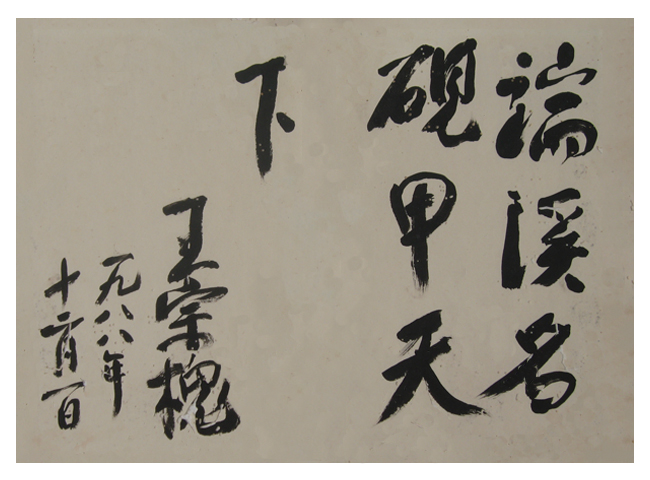 端溪名
砚甲天
下
王宗槐
一九八八年
十二月一日